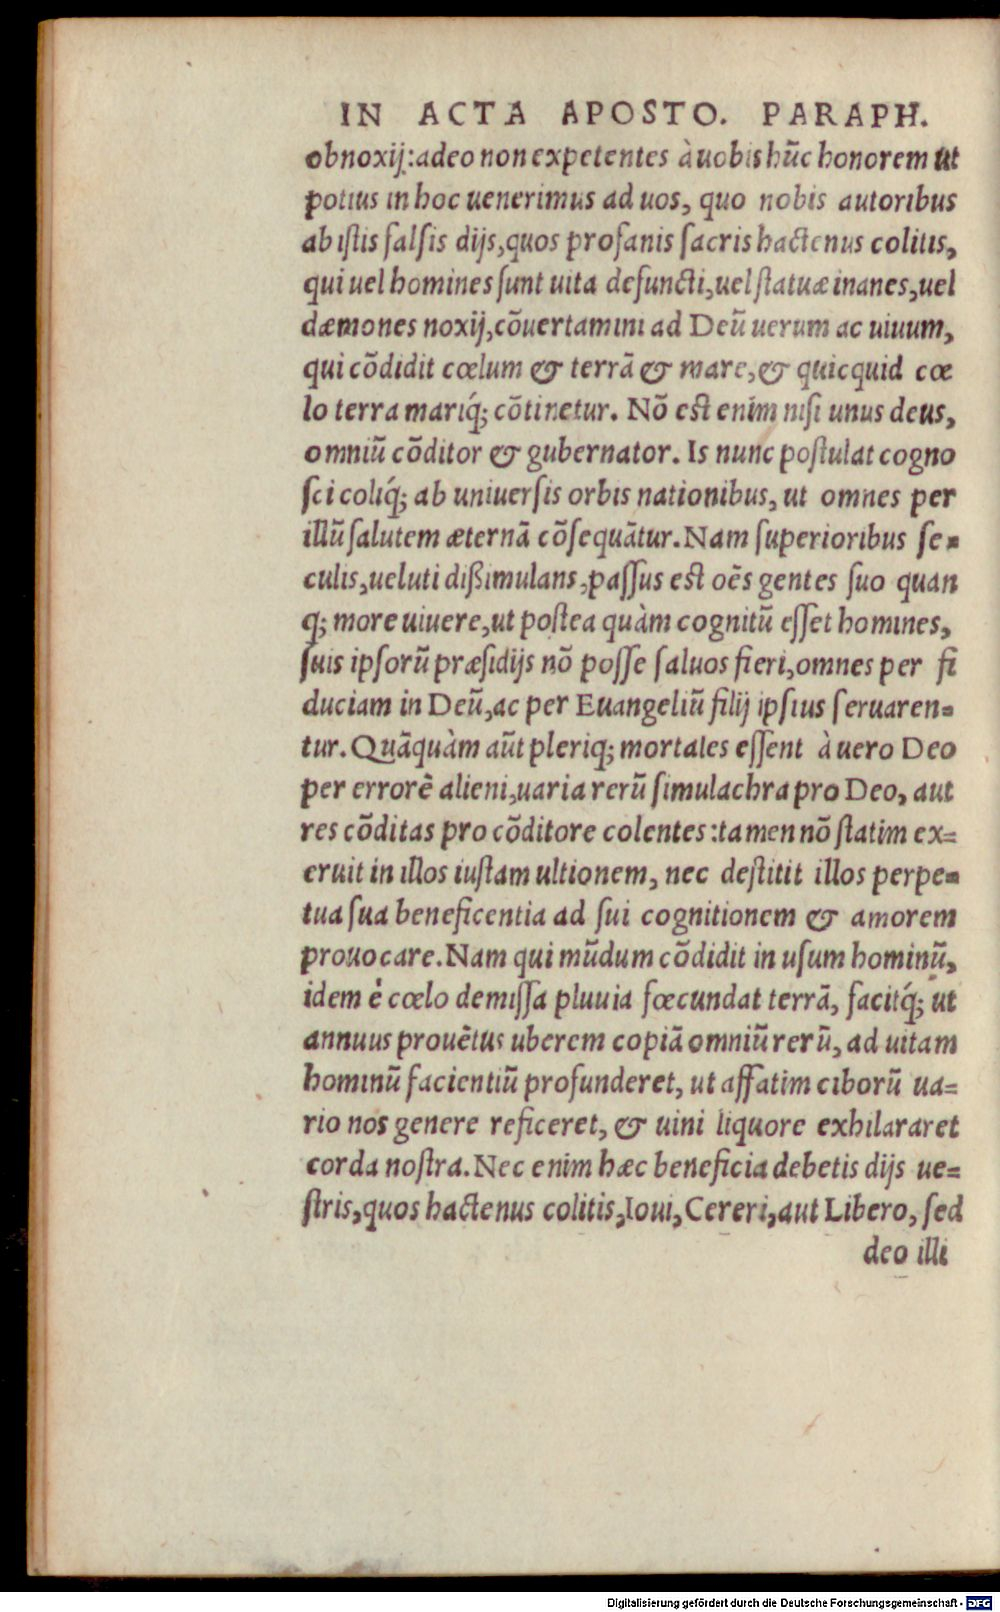 IN ACTA APOSTO. PARAPH.
obnoxij: adeo non expetentes à uobis hūc honorem ut
potius in hoc uenerimus ad uos, quo nobis autoribus
ab istis falsis dijs, quos profanis sacris hactenus colitis,
qui uel homines sunt uita defuncti, uel statuæ inanes, uel
dæmones noxij, cōuertamini ad Deū uerum ac uiuum,
qui cōdidit cœlum & terrā & mare, & quicquid cœ
lo terra mariq́; cōtinetur. Nō est enim nisi unus deus,
omniū cōditor & gubernator. Is nunc postulat cogno
sci coliq́; ab uniuersis orbis nationibus, ut omnes per
illū salutem æternā cōsequātur. Nam superioribus se-
culis, ueluti dißimulans, passus est oēs gentes suo quan
q; more uiuere, ut postea quàm cognitū esset homines,
suis ipsorū præsidijs nō posse saluos fieri, omnes per fi
duciam in Deū, ac per Euangeliū filij ipsius seruaren-
tur. Quāquàm aūt pleriq; mortales essent à uero Deo
per errorē alieni, uaria rerū simulachra pro Deo, aut
res cōditas pro cōditore colentes: tamen nō statim ex=
eruit in illos iustam ultionem, nec destitit illos perpe-
tua sua beneficentia ad sui cognitionem & amorem
prouocare. Nam qui mūdum cōdidit in usum hominū,
idem è cœlo demissa pluuia fœcundat terrā, facitq́; ut
annuus prouētus uberem copiā omniū rerū, ad uitam
hominū facientiū profunderet, ut affatim ciborū ua=
rio nos genere reficeret, & uini liquore exhilararet
corda nostra. Nec enim hæc beneficia debetis dijs ue=
stris, quos hactenus colitis, Ioui, Cereri, aut Libero, sed
deo illi
Digitalisierung gefördert durch die Deutsche Forschungsgemeinschaft - DFG